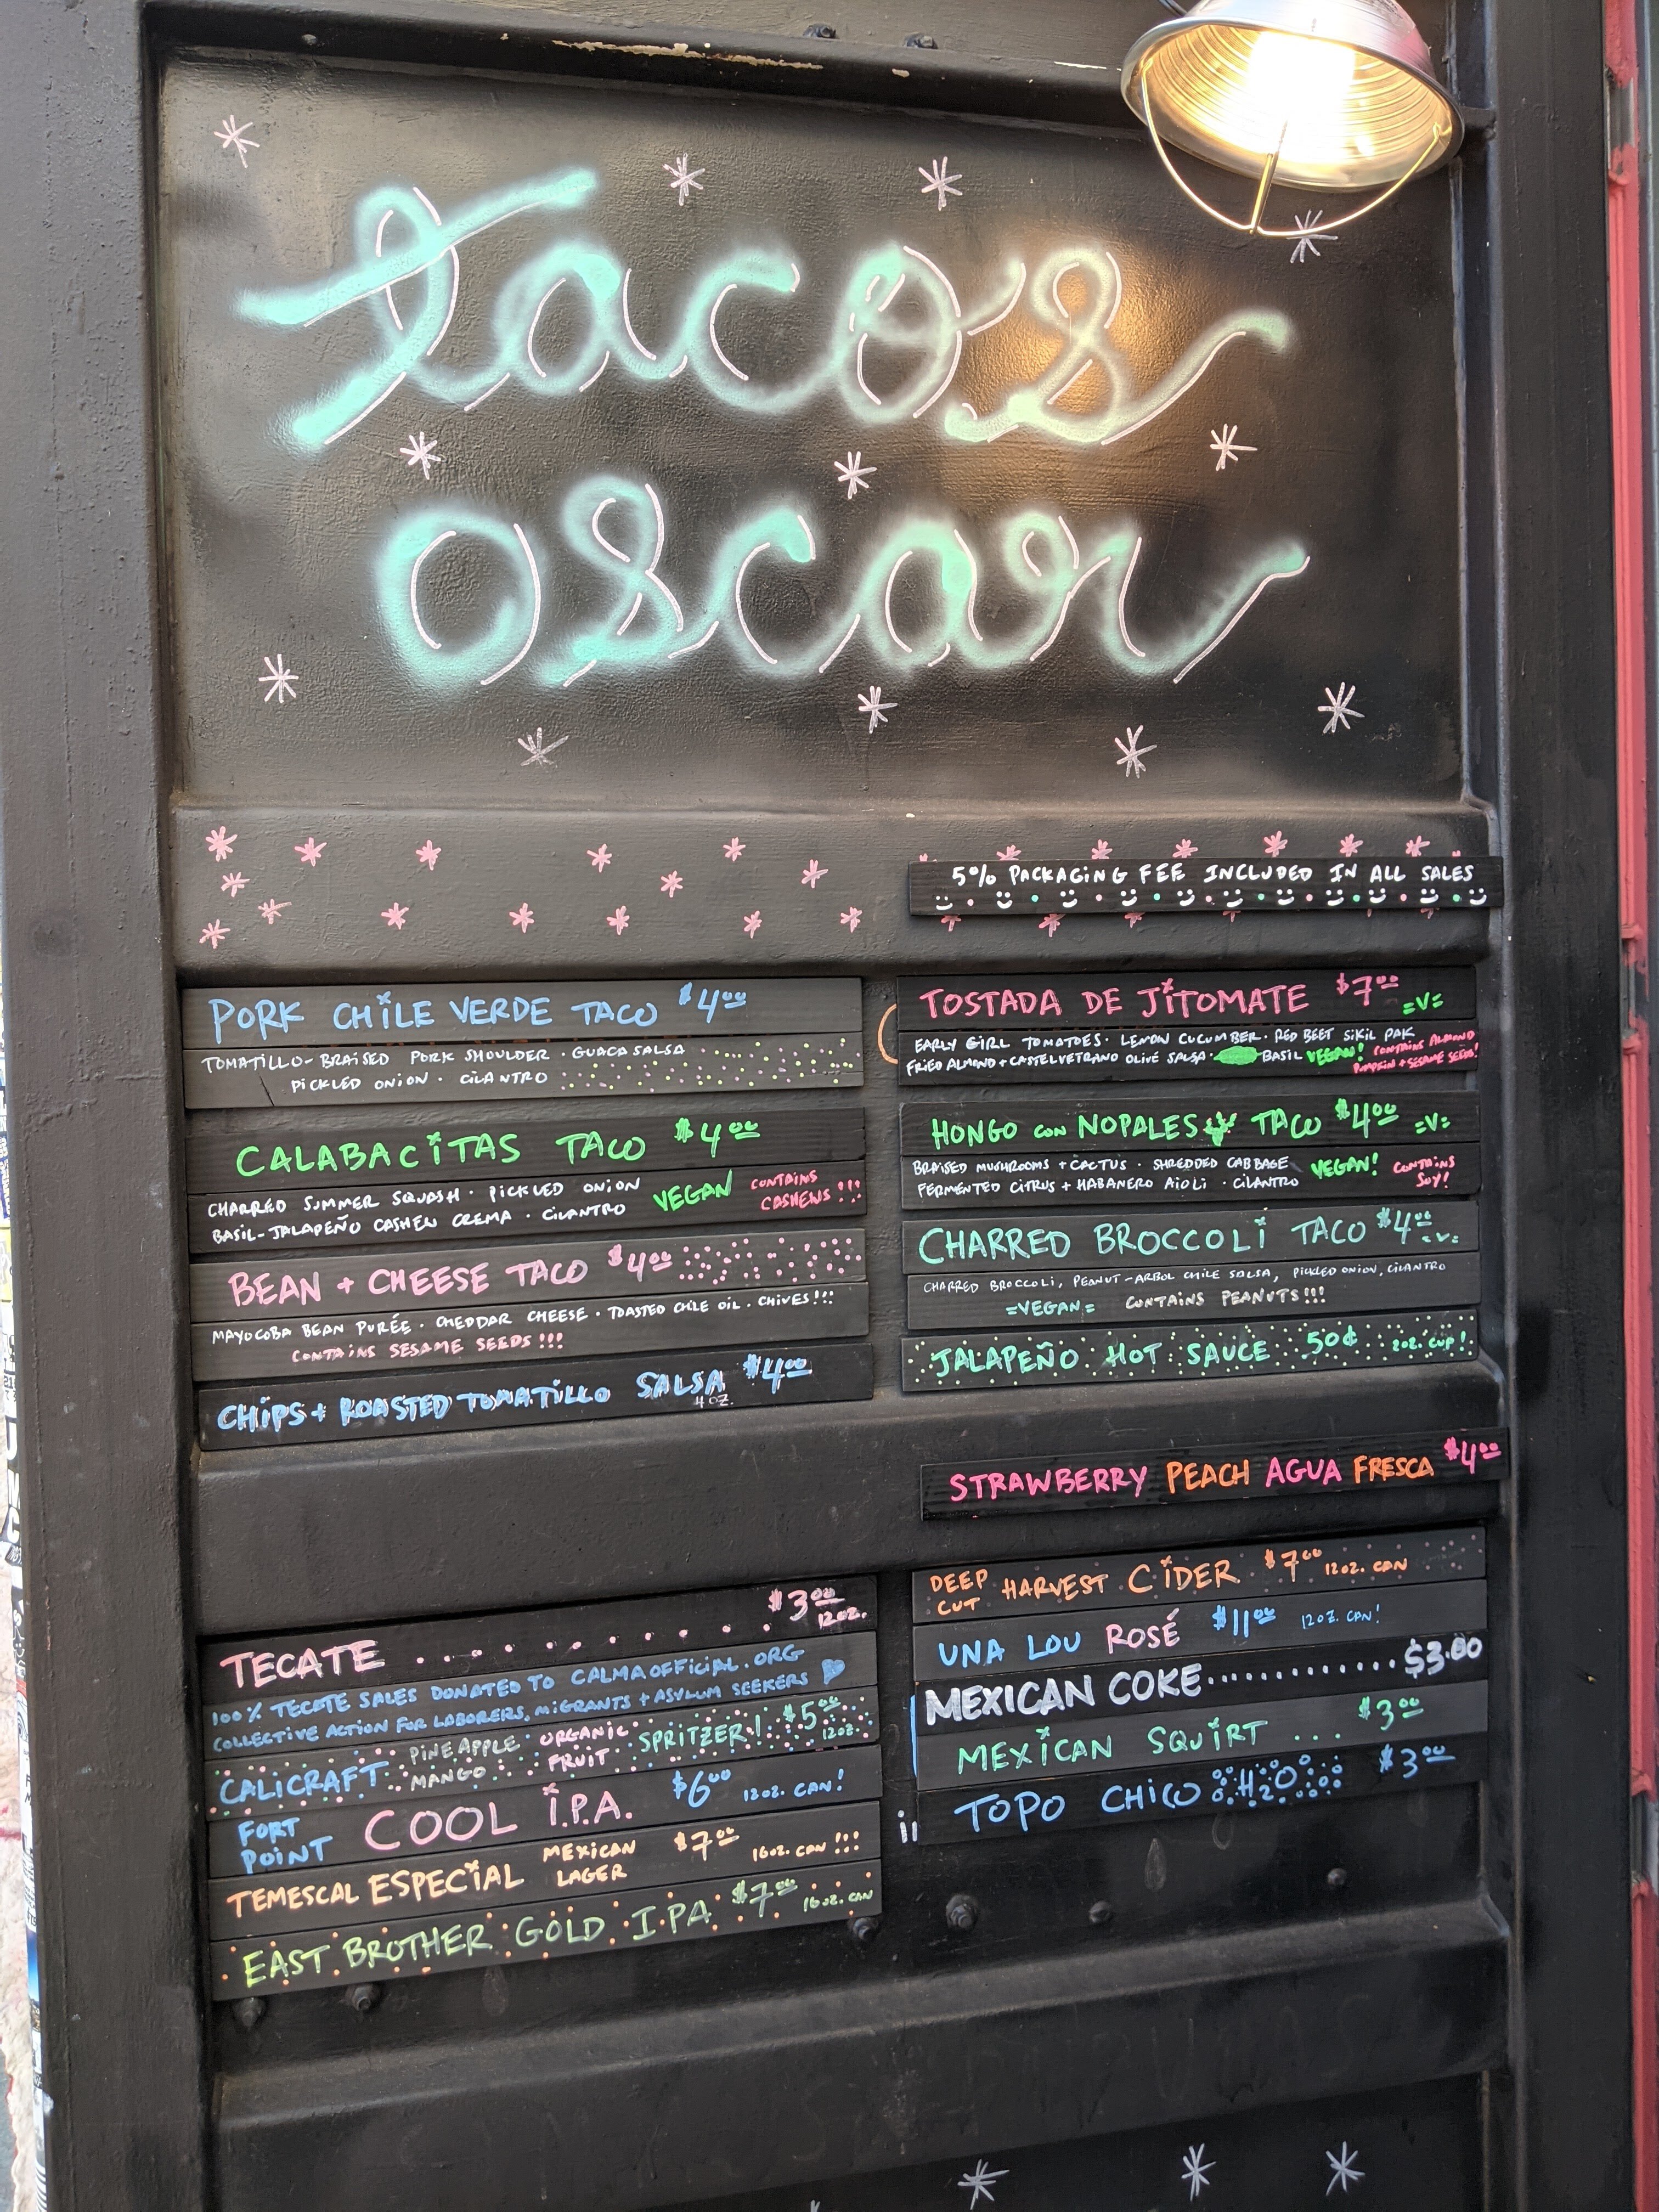 tacos
oscar
5% PACKAGING FEE INCLUDED IN ALL SALES
PORK CHILE VERDE TACO $4.00
TOMATILLO-BRAISED PORK SHOULDER · GUACASALSA
PICKLED ONION · CILANTRO
CALABACITAS TACO $4.00
CHARRED SUMMER SQUASH · PICKLED ONION
BASIL-JALAPEÑO CASHEW CREMA · CILANTRO
VEGAN
CONTAINS
CASHEWS!!!
BEAN + CHEESE TACO $4.00
MAYOCOBA BEAN PURÉE · CHEDDAR CHEESE · TOASTED CHILE OIL · CHIVES!!!
CONTAINS SESAME SEEDS!!!
CHIPS + ROASTED TOMATILLO SALSA $4.00
4 OZ.
TOSTADA DE JITOMATE $7.00 =V=
EARLY GIRL TOMATOES · LEMON CUCUMBER · RED BEET SIKIL PAK
FRIED ALMOND + CASTELVETRANO OLIVE SALSA · BASIL VEGAN!
CONTAINS ALMOND
PUMPKIN + SESAME SEEDS!
HONGO CON NOPALES TACO $4.00 =V=
BRAISED MUSHROOMS + CACTUS · SHREDDED CABBAGE
FERMENTED CITRUS + HABANERO AIOLI · CILANTRO
VEGAN!
CONTAINS
SOY!
CHARRED BROCCOLI TACO $4.00 =V=
CHARRED BROCCOLI, PEANUT-ARBOL CHILE SALSA, PICKLED ONION, CILANTRO
=VEGAN= CONTAINS PEANUTS!!!
JALAPEÑO HOT SAUCE .50¢ 2oz. CUP!
STRAWBERRY PEACH AGUA FRESCA $4.00
TECATE . . . . . . . . . . $3.00 12oz.
100% TECATE SALES DONATED TO CALMAOFFICIAL.ORG
COLLECTIVE ACTION FOR LABORERS, MIGRANTS + ASYLUM SEEKERS
CALICRAFT PINEAPPLE MANGO ORGANIC FRUIT SPRITZER! $5.00 12oz.
FORT POINT COOL I.P.A. $6.00 12oz. CAN!
TEMESCAL ESPECIAL MEXICAN LAGER $7.00 16oz. CAN!!!
EAST BROTHER GOLD I.PA $7.00 16oz. CAN
DEEP CUT HARVEST CIDER $7.00 12oz. CAN
UNA LOU ROSÉ $11.00 12OZ. CAN!
MEXICAN COKE............ $3.00
MEXICAN SQUIRT ... $3.00
TOPO CHICO H2O $3.00